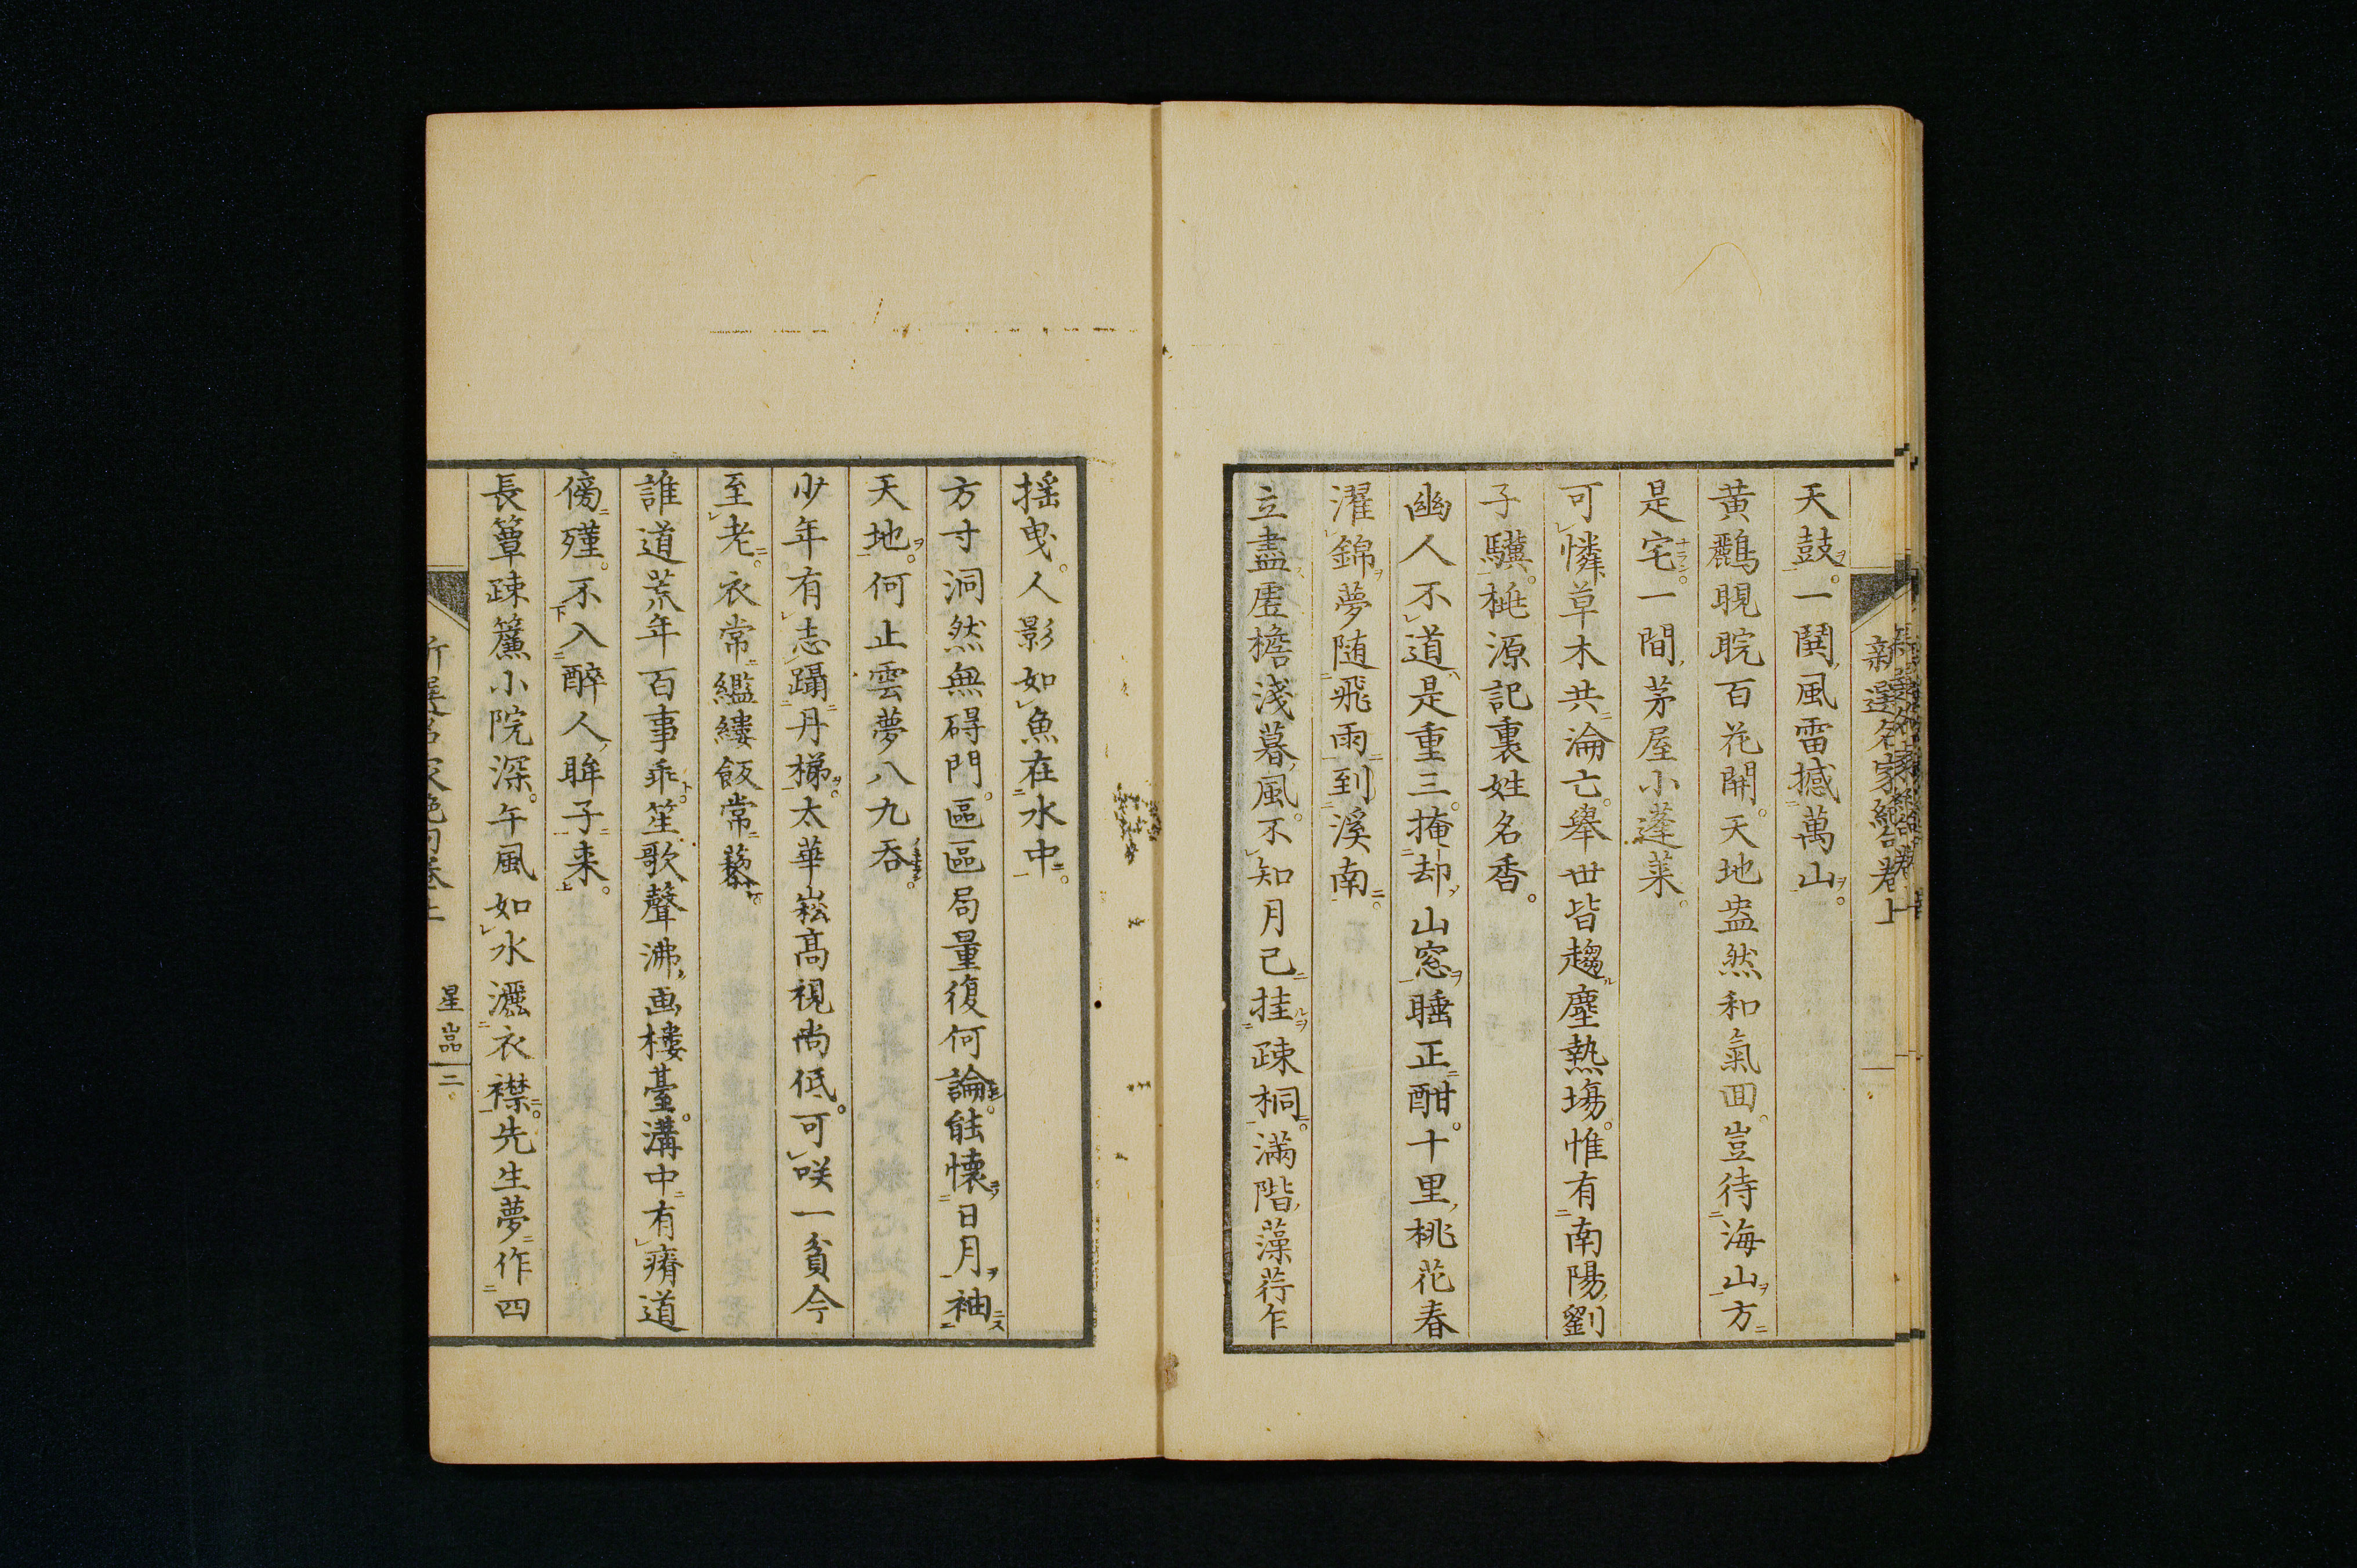 新選名家絶句巻上
天鼓。一鬨風雷撼萬山。
黃鸝睍睆百花開。天地盎然和氣回。豈待海山方
是宅。一間茅屋小蓬萊。
可憐草木共淪亡。舉世皆趨塵熱塲。惟有南陽劉
子驥。桃源記裏姓名香。
幽人不道是重三。掩却山窓睡正酣。十里桃花春
濯錦夢随飛雨到溪南。
立盡虛檐淺暮風。不知月已挂疎桐。滿階藻荇乍
揺曳。人影如魚在水中。
方寸洞然無碍門。區區局量復何論。能懷日月袖
天地。何止雲夢八九吞。
少年有志躡丹梯。太華崧高視尚低。可咲一貧今
至老。衣常繿縷飯常藜。
誰道荒年百事乖。笙歌聲沸画楼臺。溝中有瘠道
傍殣。不入醉人眸子来。
長簟疎簾小院深。午風如水灑衣襟。先生夢作四
新選名家絶句巻上 星巖 二